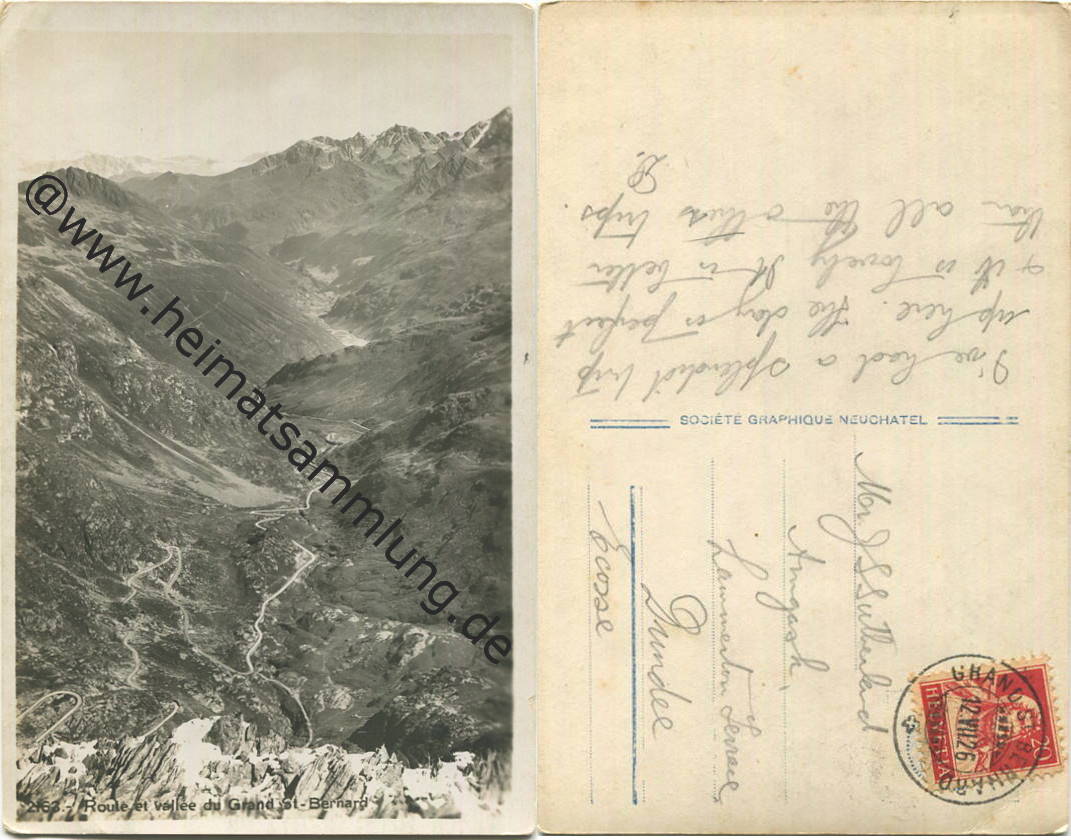 @www.heimatsammlung.de
2163.- Route et vallée du Grand St-Bernard
I've had a splendid trip
up here. The day is perfect
& it is lovely. It is better
than all the others trips.
SOCIÉTÉ GRAPHIQUE NEUCHATEL
Mr J S Sutherland
Amgash,
Lammerton Terrace,
Dundee
Ecosse
GRAND ST BERNARD
12.VII.26
20
HELVETIA